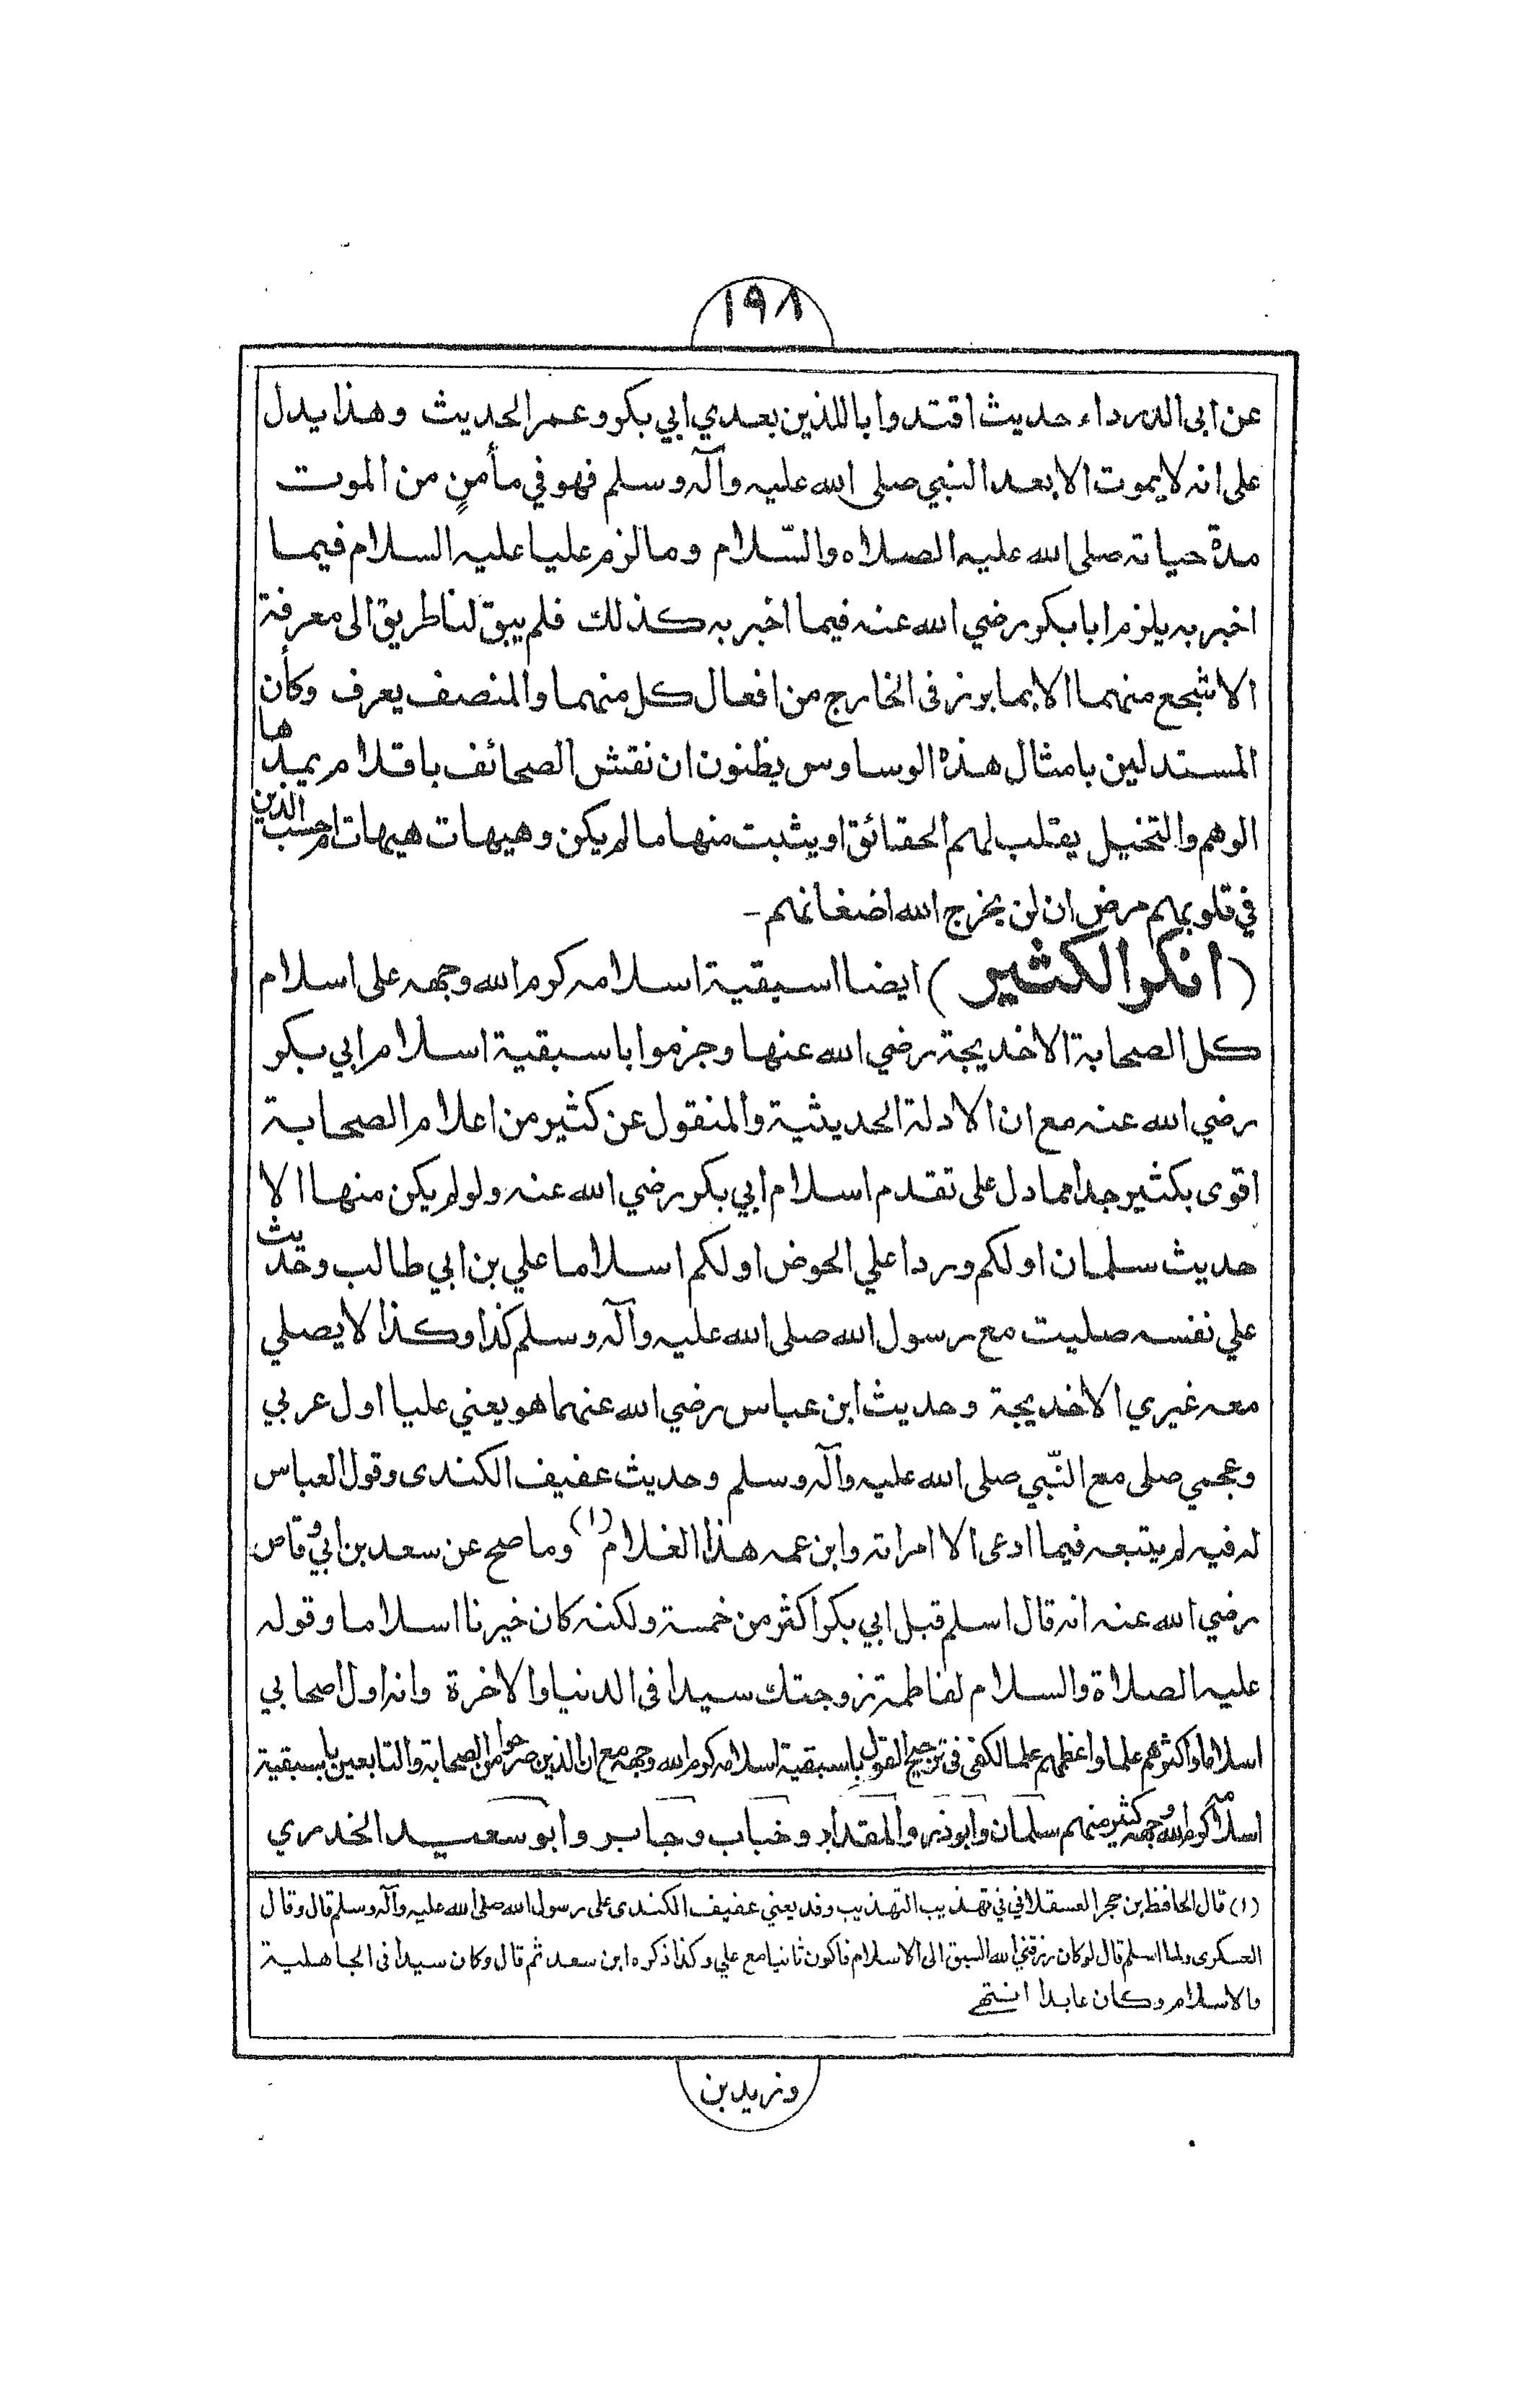 ١٩٨
عن ابي الدرداء حديث اقتدوا باللذين بعدي ابي بكر وعمر الحديث وهذا يدل
على انه لا يموت الا بعد النبي صلى الله عليه وآله وسلم فهو في مأمنٍ من الموت
مدة حياته صلى الله عليه الصلاه والسّلام وما لزم عليا عليه السلام فيما
اخبر به يلزم ابا بكر رضي الله عنه فيما اخبر به كذلك فلم يبق لنا طريق الى معرفة
الاشجع منهما الا بما برز في الخارج من افعال كل منهما والمنصف يعرف وكأن
المستدلين بامثال هذه الوساوس يظنون ان نقش الصحائف باقلام يمدها
الوهم والتخيل يقلب لهم الحقائق او يثبت منها ما لم يكن وهيهات هيهات ام حسب الذين
في قلوبهم مرض ان لن يخرج الله اضغانهم -
(انكر الكثير) ايضا اسبقية اسلامه كرم الله وجهه على اسلام
كل الصحابة الا خديجة رضي الله عنها وجزموا باسبقية اسلام ابي بكر
رضي الله عنه مع ان الادلة الحديثية والمنقول عن كثير من اعلام الصحابة
اقوى بكثير جدا مما دل على تقدم اسلام ابي بكر رضي الله عنه ولو لم يكن منها الا
حديث سلمان اولكم ورودا علي الحوض اولكم اسلاما علي بن ابي طالب وحديث
علي نفسه صليت مع رسول الله صلى الله عليه وآله وسلم كذا وكذا لا يصلي
معه غيري الا خديجة وحديث ابن عباس رضي الله عنهما هو يعني عليا اول عربي
وعجمي صلى مع النّبي صلى الله عليه وآله وسلم وحديث عفيف الكندى وقول العباس
له فيه لم يتبعه فيما ادعى الا امراته وابن عمه هذا الغلام (١) وما صح عن سعد بن ابي وقاص
رضي الله عنه انه قال اسلم قبل ابي بكر اكثر من خمسة ولكنه كان خيرنا اسلاما وقوله
عليه الصلاة والسلام لفاطمة زوجتك سيدا في الدنيا والاخرة وانه اول اصحابي
اسلاما واكثرهم علما واعظمهم حلما لكفى في ترجيح القول باسبقية اسلامه كرم الله وجهه مع ان الذين صرحوا من الصحابة والتابعين باسبقية
اسلامه كرم الله وجهه كثير منهم سلمان وابوذر والمقداد وخباب وجابر وابو سعيد الخدري
(١) قال الحافظ بن حجر العسقلاني في تهذيب التهذيب وفد يعني عفيف الكندى على رسول الله صلى الله عليه وآله وسلم قال وقال
العسكرى ولما اسلم قال لو كان رزقني الله السبق الى الاسلام فاكون ثانيا مع علي وكذا ذكره ابن سعد ثم قال وكان سيدا في الجاهلية
والاسلام وكان عابدا انتهى
وزيد بن